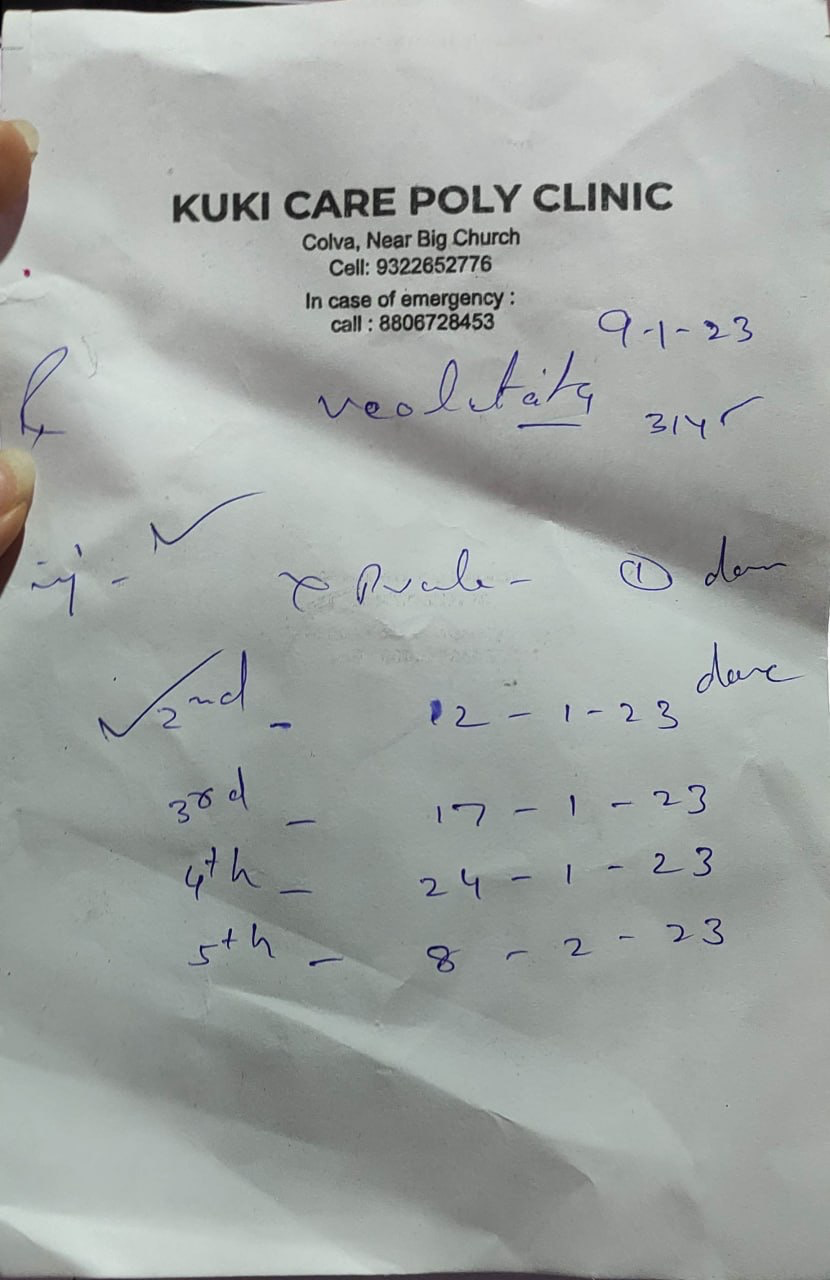 KUKI CARE POLY CLINIC
Colva, Near Big Church
Cell: 9322652776
In case of emergency :
call : 8806728453
9-1-23
31 yr
①
2nd - 12 - 1 - 23 done
3rd - 17 - 1 - 23
4th - 24 - 1 - 23
5th - 8 - 2 - 23